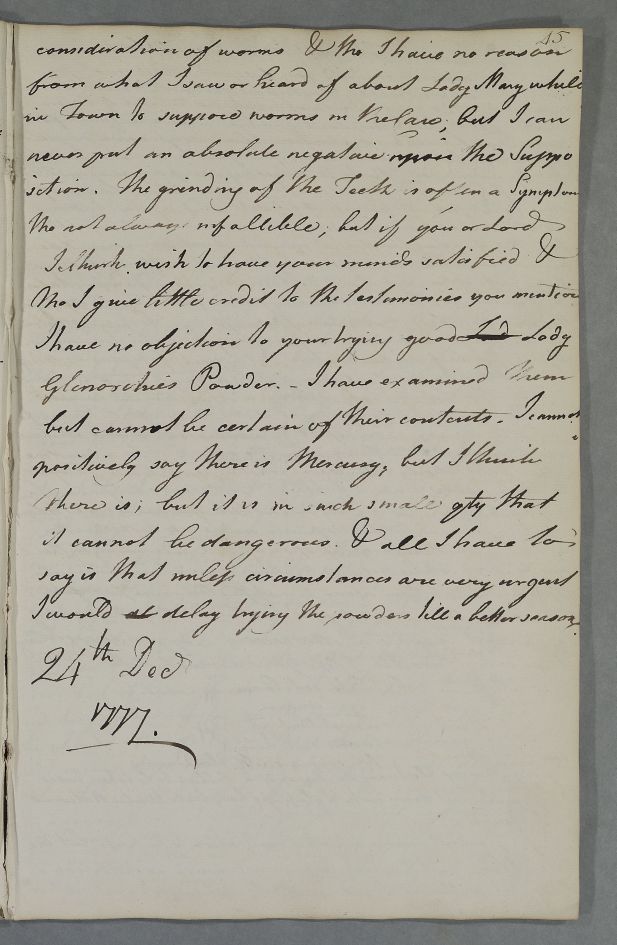 45
consideration of worms & tho I have no reason
from what I saw or heard of about Lady Mary while
in Town to suppose worms in the case, but I can
never put an absolute negative upon the Suppo
sition. The grinding of the Teeth is often a Symptom
tho not always infallible; but if you or Lord
I think, wish to have your minds satisfied &
tho I give little credit to the testemonies you mention
I have no objection to your trying good Ld Lady
Glenorchies Powder. - I have examined them
but cannot be certain of their contents. I cannot
positively say there is Mercury, but I think
there is; but it is in such small qty that
it cannot be dangerous. & all I have to
say is that unless circumstances are very urgent
I would delay trying the powders till a better season.
24th Decr
1777.